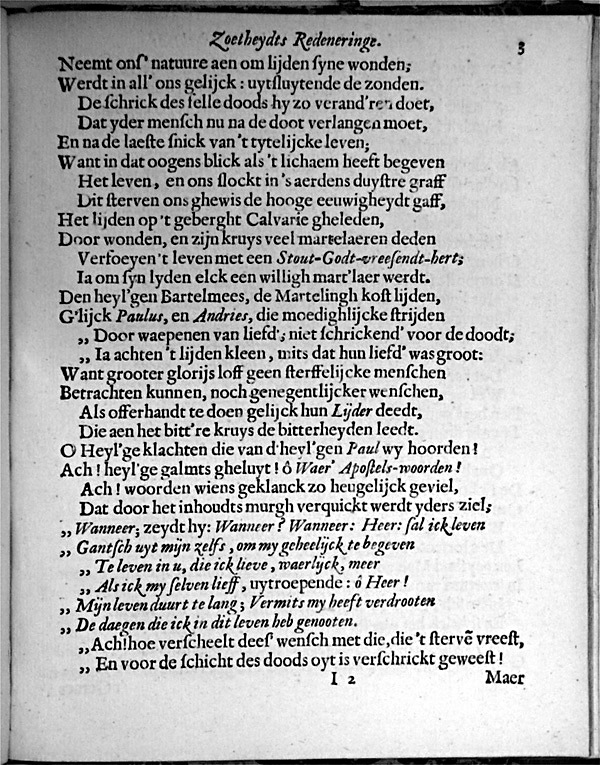 Zoetheydts Redeneringe. 3
Neemt onſ' natuure aen om lijden ſyne wonden;
Werdt in all' ons gelijck : uytſluytende de zonden.
De ſchrick des felle doods hy zo verand'ren doet,
Dat yder menſch nu na de doot verlangen moet,
En na de laeſte ſnick van 't tytelijcke leven;
Want in dat oogens blick als 't lichaem heeft begeven
Het leven, en ons ſlockt in 's aerdens duyſtre graff
Dit ſterven ons ghewis de hooge eeuwigheydt gaff,
Het lijden op 't geberght Calvarie gheleden,
Door wonden, en zijn kruys veel martelaeren deden
Verfoeyen 't leven met een Stout-Godt-vreeſendt-hert;
Ia om ſyn lyden elck een willigh mart'laer werdt.
Den heyl'gen Bartelmees, de Martelingh koſt lijden,
G'lijck Paulus, en Andries, die moedighlijcke ſtrijden
„ Door waepenen van liefd'; niet ſchrickend' voor de doodt;
„ Ia achten 't lijden kleen, mits dat hun liefd' was groot:
Want grooter glorijs loff geen ſterffelijcke menſchen
Betrachten kunnen, noch genegentlijcker wenſchen,
Als offerhandt te doen gelijck hun Lijder deedt,
Die aen het bitt're kruys de bitterheyden leedt.
O Heyl'ge klachten die van d'heyl'gen Paul wy hoorden !
Ach ! heyl'ge galmts gheluyt ! ô Waer' Apoſtels-woorden !
Ach ! woorden wiens geklanck zo heugelijck geviel,
Dat door het inhoudts murgh verquickt werdt yders ziel;
„ Wanneer; zeydt hy: Wanneer ? Wanneer: Heer: ſal ick leven
„ Gantſch uyt mijn zelfs, om my geheelijck te begeven
„ Te leven in u, die ick lieve, waerlijck, meer
„ Als ick my ſelven lieff, uytroepende : ô Heer !
„ Mijn leven duurt te lang; Vermits my heeft verdrooten
„ De daegen die ick in dit leven heb genooten.
„ Ach! hoe verſcheelt deeſ' wenſch met die, die 't ſtervē vreeſt,
„ En voor de ſchicht des doods oyt is verſchrickt geweeſt !
I 2 Maer